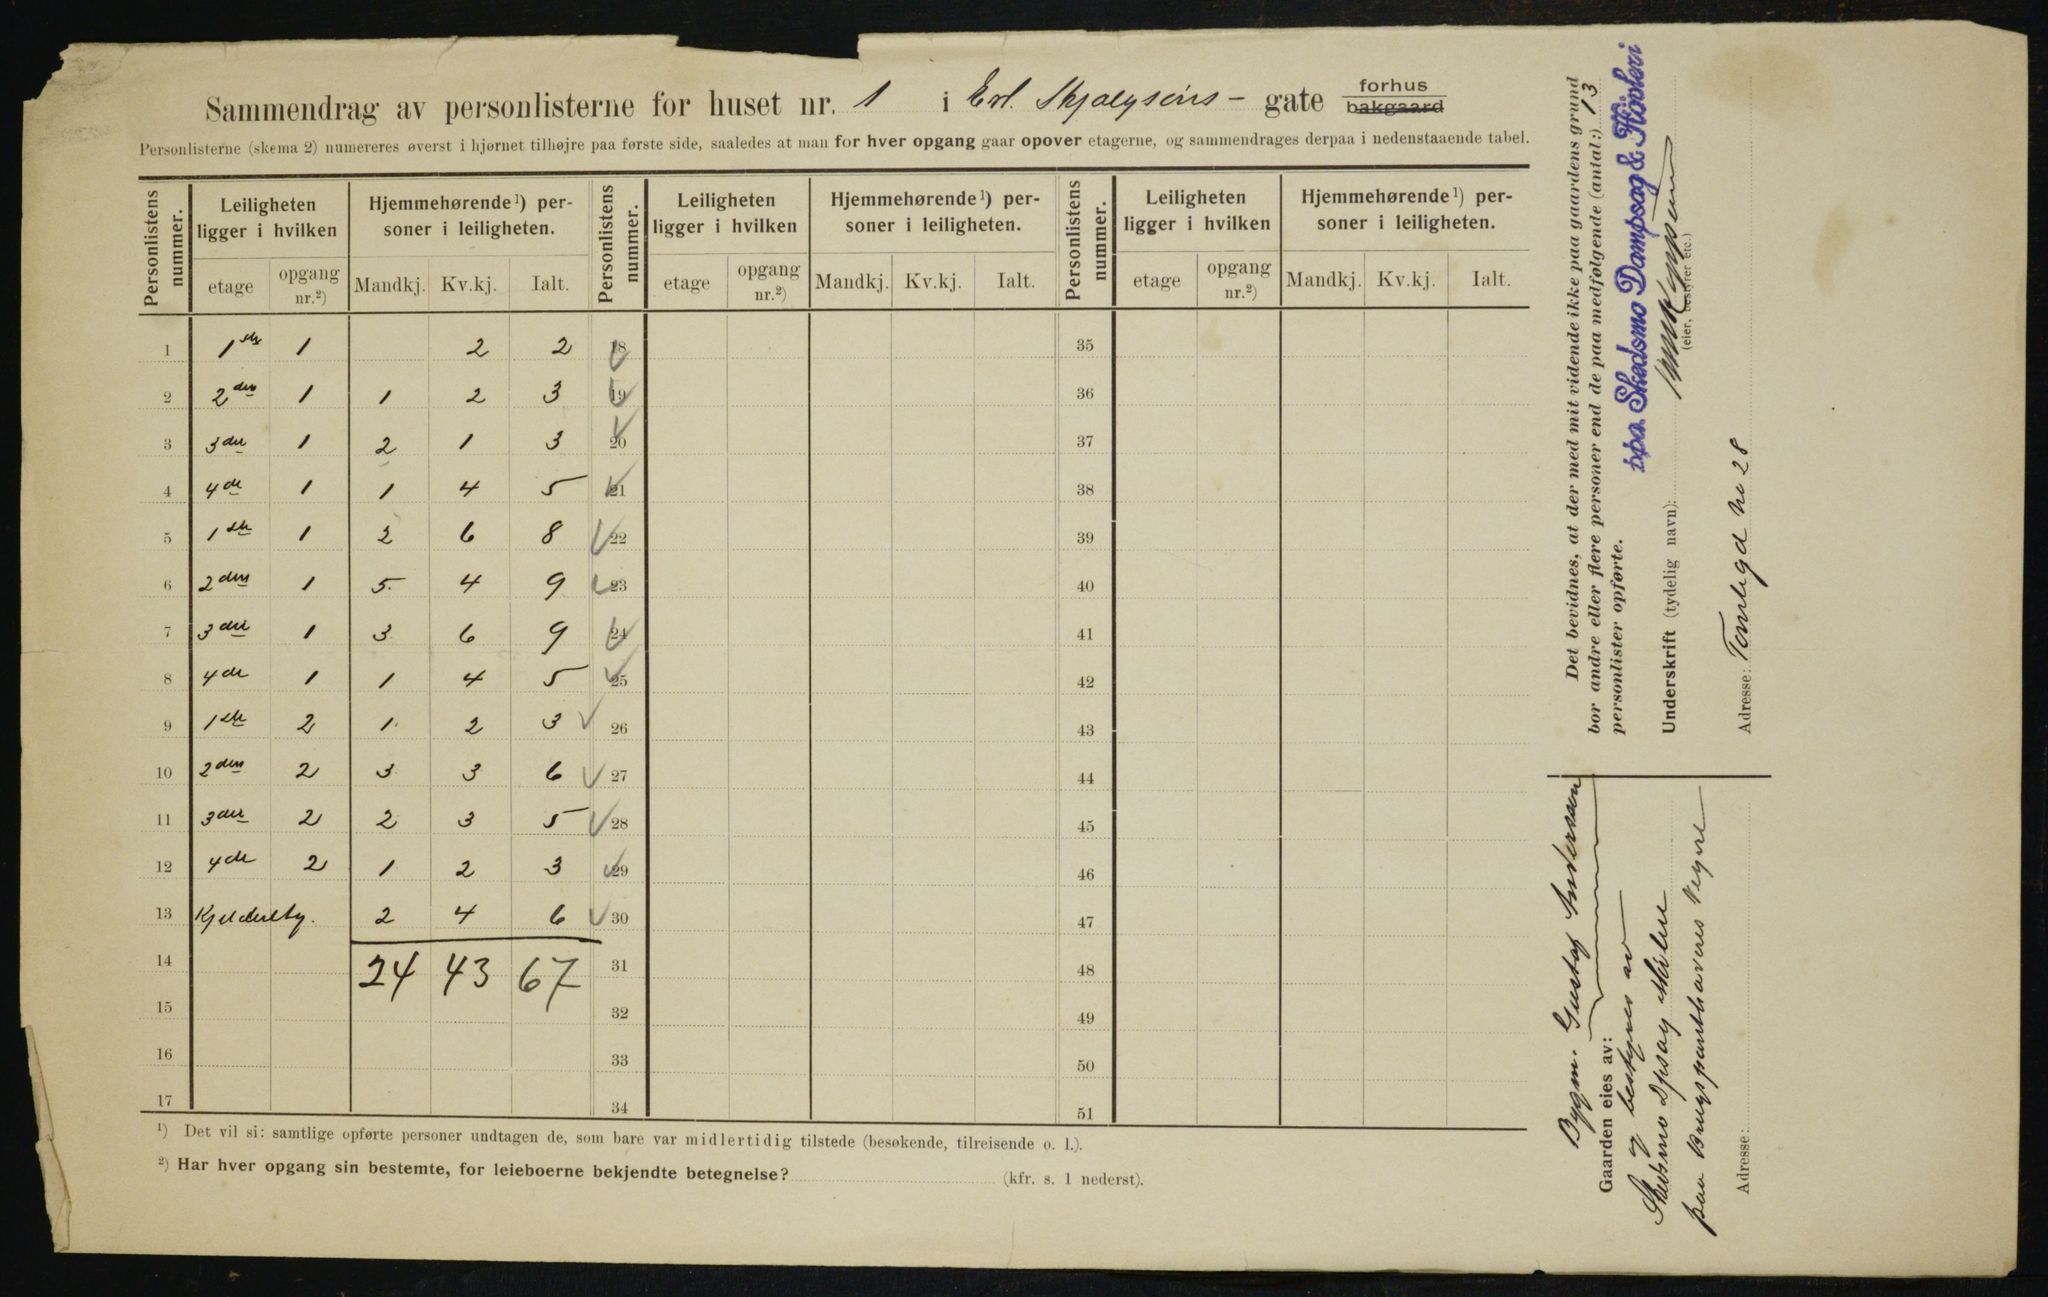 Sammendrag av personlisterne for huset nr. 1 i Erl. Skjalgsøns - gate forhus bakgaard
Personlisterne (skema 2) numereres øverst i hjørnet tilhøjre paa første side, saaledes at man for hver opgang gaar opover etagerne, og sammendrages derpaa i nedenstaaende tabel.
Personlistens nummer. Leiligheten ligger i hvilken Hjemmehørende¹) personer i leiligheten. Personlistens nummer. Leiligheten ligger i hvilken Hjemmehørende¹) personer i leiligheten. Personlistens nummer. Leiligheten ligger i hvilken Hjemmehørende¹) personer i leiligheten.
etage opgang nr.²) Mandkj. Kv.kj. Ialt. etage opgang nr.²) Mandkj. Kv.kj. Ialt. etage opgang nr.²) Mandkj. Kv.kj. Ialt.
1 1ste 1 2 2 18 35
2 2den 1 1 2 3 19 36
3 3die 1 2 1 3 20 37
4 4de 1 1 4 5 21 38
5 1ste 1 2 6 8 22 39
6 2den 1 5 4 9 23 40
7 3die 1 3 6 9 24 41
8 4de 1 1 4 5 25 42
9 1ste 2 1 2 3 26 43
10 2den 2 3 3 6 27 44
11 3die 2 2 3 5 28 45
12 4de 2 1 2 3 29 46
13 Kjelderetg. 2 4 6 30 47
14 24 43 67 31 48
15 32 49
16 33 50
17 34 51
¹) Det vil si: samtlige opførte personer undtagen de, som bare var midlertidig tilstede (besøkende, tilreisende o. l.).
²) Har hver opgang sin bestemte, for leieboerne bekjendte betegnelse? (kfr. s. 1 nederst).
Det bevidnes, at der med mit vidende ikke paa gaardens grund
bor andre eller flere personer end de paa medfølgende (antal:) 13
personlister opførte.
ppa. Skedsmo Dampsag & Høvleri
Underskrift (tydelig navn):
(eier, bestyrer etc.)
Adresse: Tomtegd No 28
Bygm. Gustaf Andersson
Gaarden eies av:
og bestyres av
Skedsmo Dpsag &
paa Brugspanthaveres Vegne
Adresse: